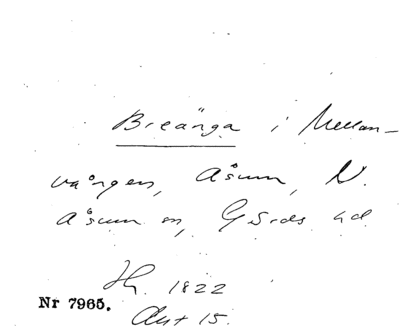 Breänga i Mellan-
vången, Åsum, N.
Åsum sn, Gärds hd
Hy. 1822
Akt 15.
Nr 7965.